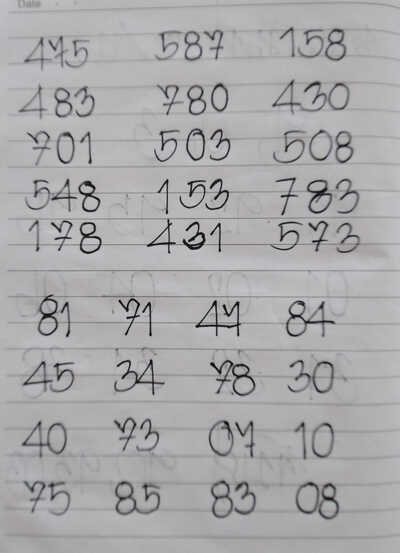 Date
475 587 158
483 780 430
701 503 508
548 153 783
178 431 573
81 71 47 84
45 34 78 30
40 73 07 10
75 85 83 08